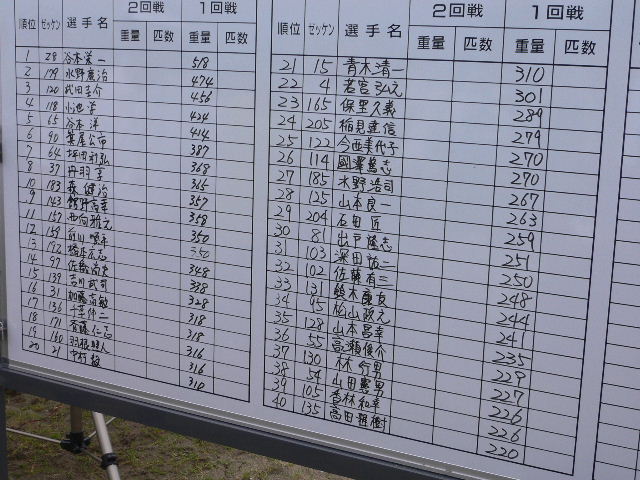 2回戦 1回戦
順位 ゼッケン 選手名 重量 匹数 重量 匹数
1 28 谷本栄一 518
2 179 水野廣治 474
3 120 武田圭介 456
4 118 小池 学 424
5 65 谷本 洋 414
6 90 公市 387
7 64 坪田 368
8 37 丹羽 365
10 183 森 健治 357
9 143 358
11 157 西向雅元 350
12 159 前川 350
13 192 348
14 97 佐藤 338
15 139 吉川武司 328
16 31 加藤 318
17 136 千葉伸二 318
18 171 斉藤仁志 316
19 160 羽根 316
20 21 中村 310
2回戦 1回戦
順位 ゼッケン 選手名 重量 匹数 重量 匹数
21 15 青木清一 310
22 4 若宮弘元 301
23 165 保里久義 289
24 205 稲見達信 279
25 122 今西美代子 270
26 114 國澤篤志 270
27 185 水野浩司 267
28 125 山本良一 263
29 204 石田 匠 259
30 81 出戸隆志 251
31 103 深田 250
32 102 佐藤有三 248
33 131 鈴木康友 244
34 95 松山政元 241
35 128 山本昌幸 235
36 55 高瀬俊介 229
37 130 林 行男 227
38 54 山田憲男 226
39 105 杏林和幸 226
40 135 高田雅樹 220